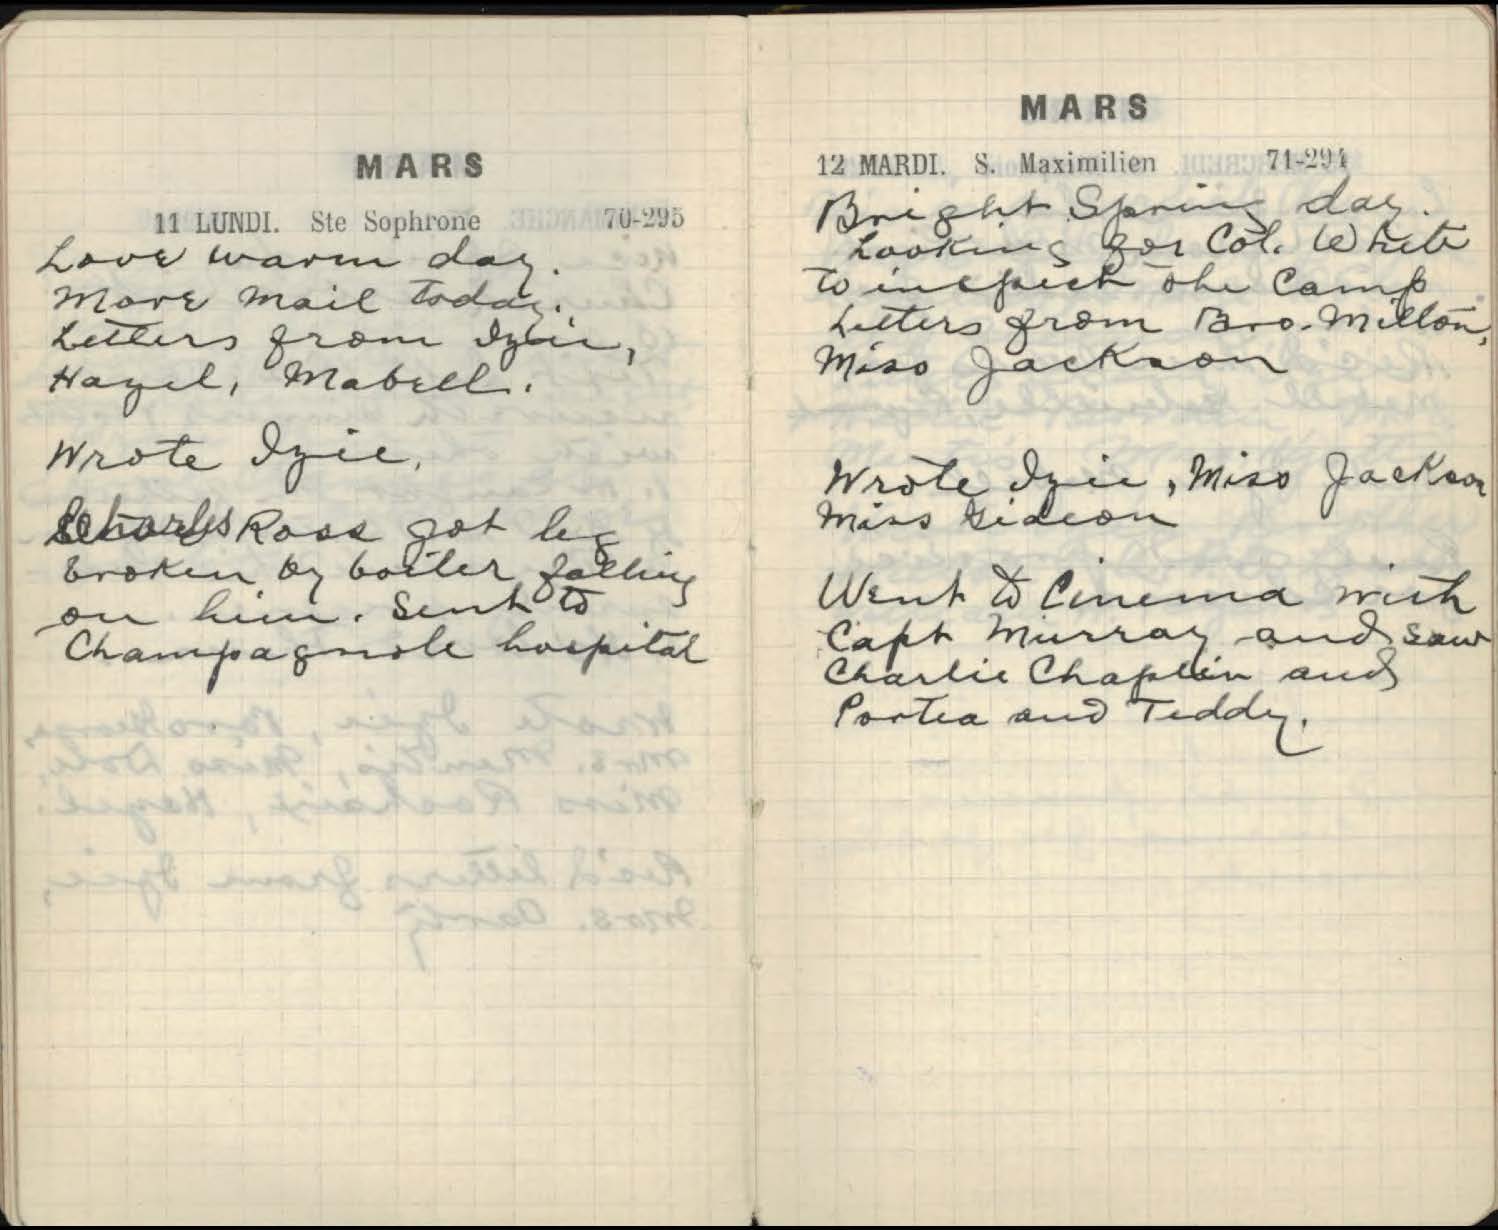 MARS
11 LUNDI. Ste Sophrone 70-295
Love warm day.
More mail today.
Letters from Izie,
Hazel, Mabell.
Wrote Izie,
Charles Ross got leg
broken by boiler falling
on him. Sent to
Champagnole hospital
MARS
12 MARDI. S. Maximilien 71-294
Bright Spring day.
Looking for Col. White
to inspect the Camp
Letters from Bro. Milton,
Miss Jackson
Wrote Izie, Miss Jackson
Miss Gideon
Went to Cinema with
Capt Murray and saw
Charlie Chaplin and
Portea and Teddy.